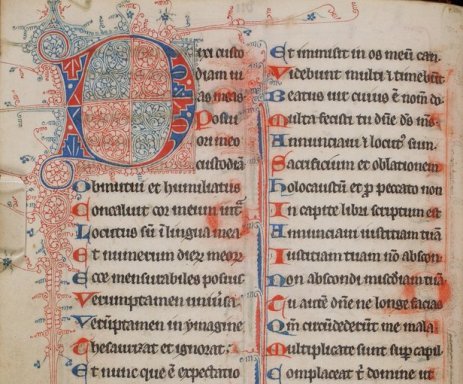 Dixi custo
diam ui
as meas
Posui
ori meo
custodiā
Obmutui et humiliatus
Concaluit cor meum int̄
Locutus sū ī lingua mea
Et numerum dierꝝ meoꝝ
Ecce mensurabiles posuis
Verumptamen uniūsa
Verūptamen in ymagine
Thesaurizat et ignorat
Et nunc que ē expectatio
Et immisit in os meū can
Videbunt multi ⁊ timebūt
Beatus uir cuius ē nom̄ do
Multa fecisti tu dn̄e ds̄ ms̄
Annunciaui ⁊ locutꝰ sum
Sacrificium et oblationem
holocaustū et ꝓ peccato non
In capite libri scriptum est
Annunciaui iustitiam tuam
Iustitiam tuam nō abscon
Non abscondi miscḋiam tuā
Tu autē dn̄e ne longe facias
Qm̄ circūdederūt me mala
Multiplicate sunt sup capill
Complaceat t̄ domine ut